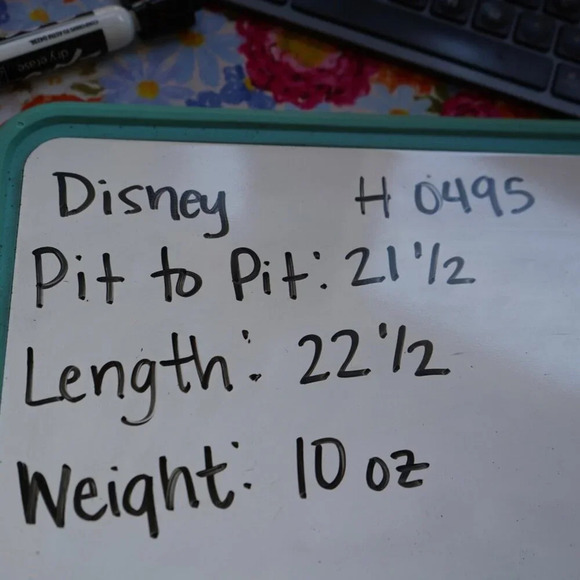 dry erase
Disney H 0495
Pit to Pit: 21 1/2
Length: 22 1/2
Weight: 10 oz